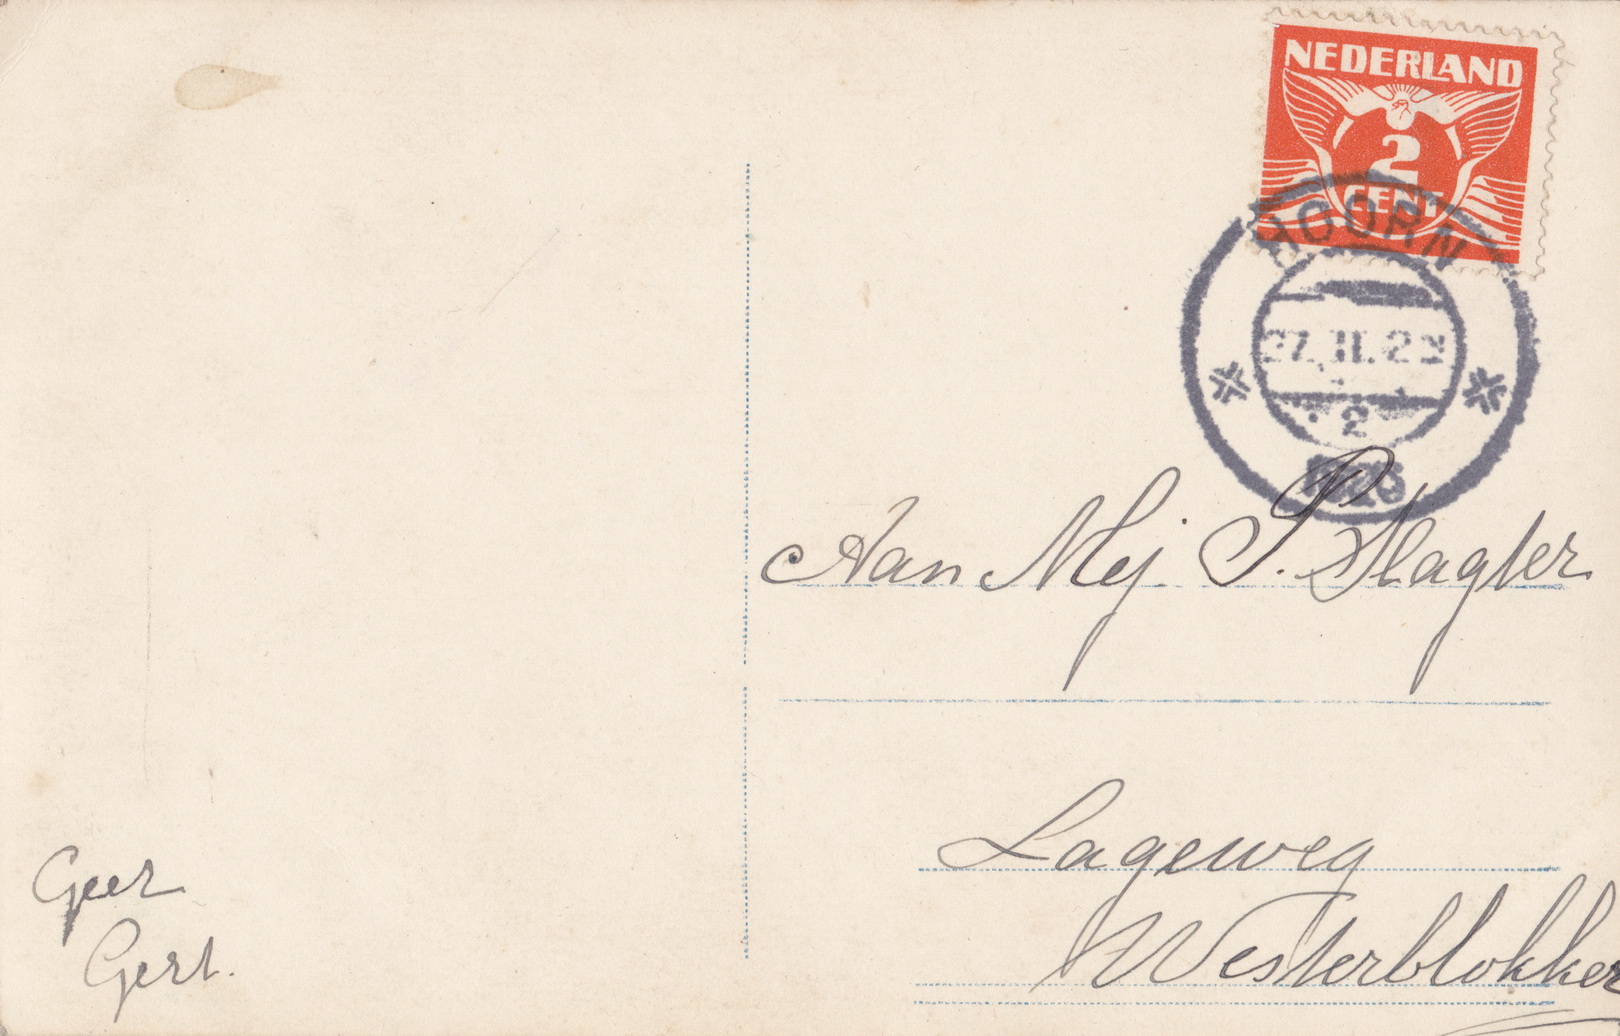 NEDERLAND
2
CENT
HOORN
27.III.2
2
1926
Aan Mej. P. Slagter
Lageweg
Westerblokker
Geer
Gert.